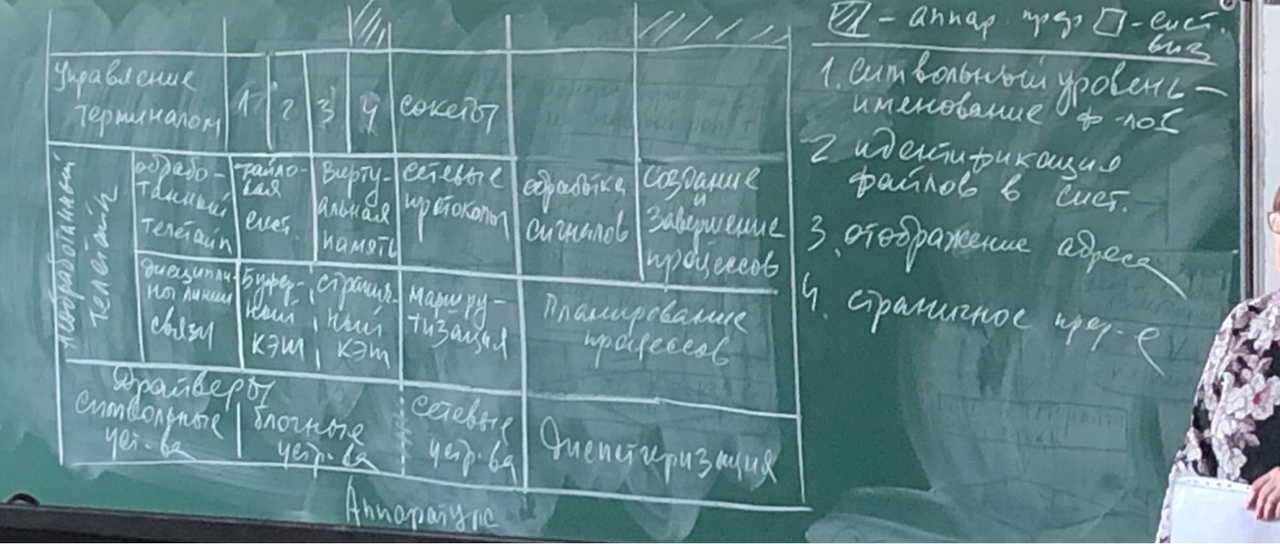 ▨ - аппар. прер □ - сист.
выз
Управление
терминалом
1 2 3 4
сокеты
Необработанный
телетайп
обрабо-
танный
телетайп
файло-
вая
сист.
Вирту-
альная
память
сетевые
протоколы
обработка
сигналов
создание
и
завершение
процессов
дисципли-
ны линии
связи
Буфер-
ный
кэш
странич-
ный
кэш
маршру-
тизация
Планирование
процессов
Драйверы
символьные
уст-ва
блочные
устр-ва
сетевые
устр-ва
Диспетчеризация
Аппаратура
1. символьный уровень -
именование ф-лов
2 идентификация
файлов в сист.
3. отображение адреса
4. страничное прер-е